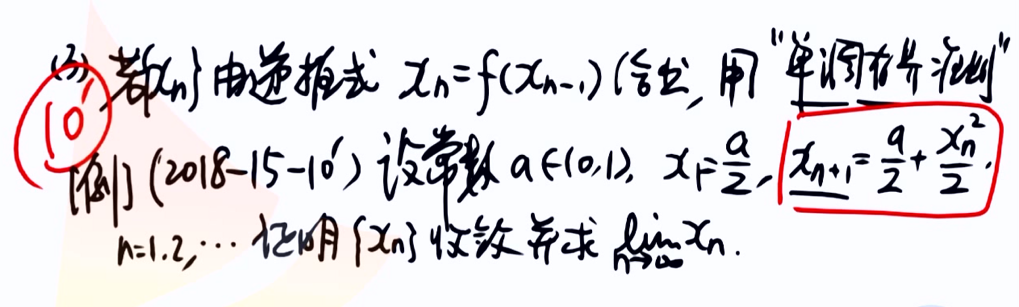 (3) 若{xn}由递推式 xn=f(xn-1)给出, 用“单调有界准则”
10'
[例] (2018-15-10') 设常数 a∈(0,1), x1=a/2, xn+1=a/2+xn²/2,
n=1.2,… 证明{xn}收敛并求 lim n→∞ xn.